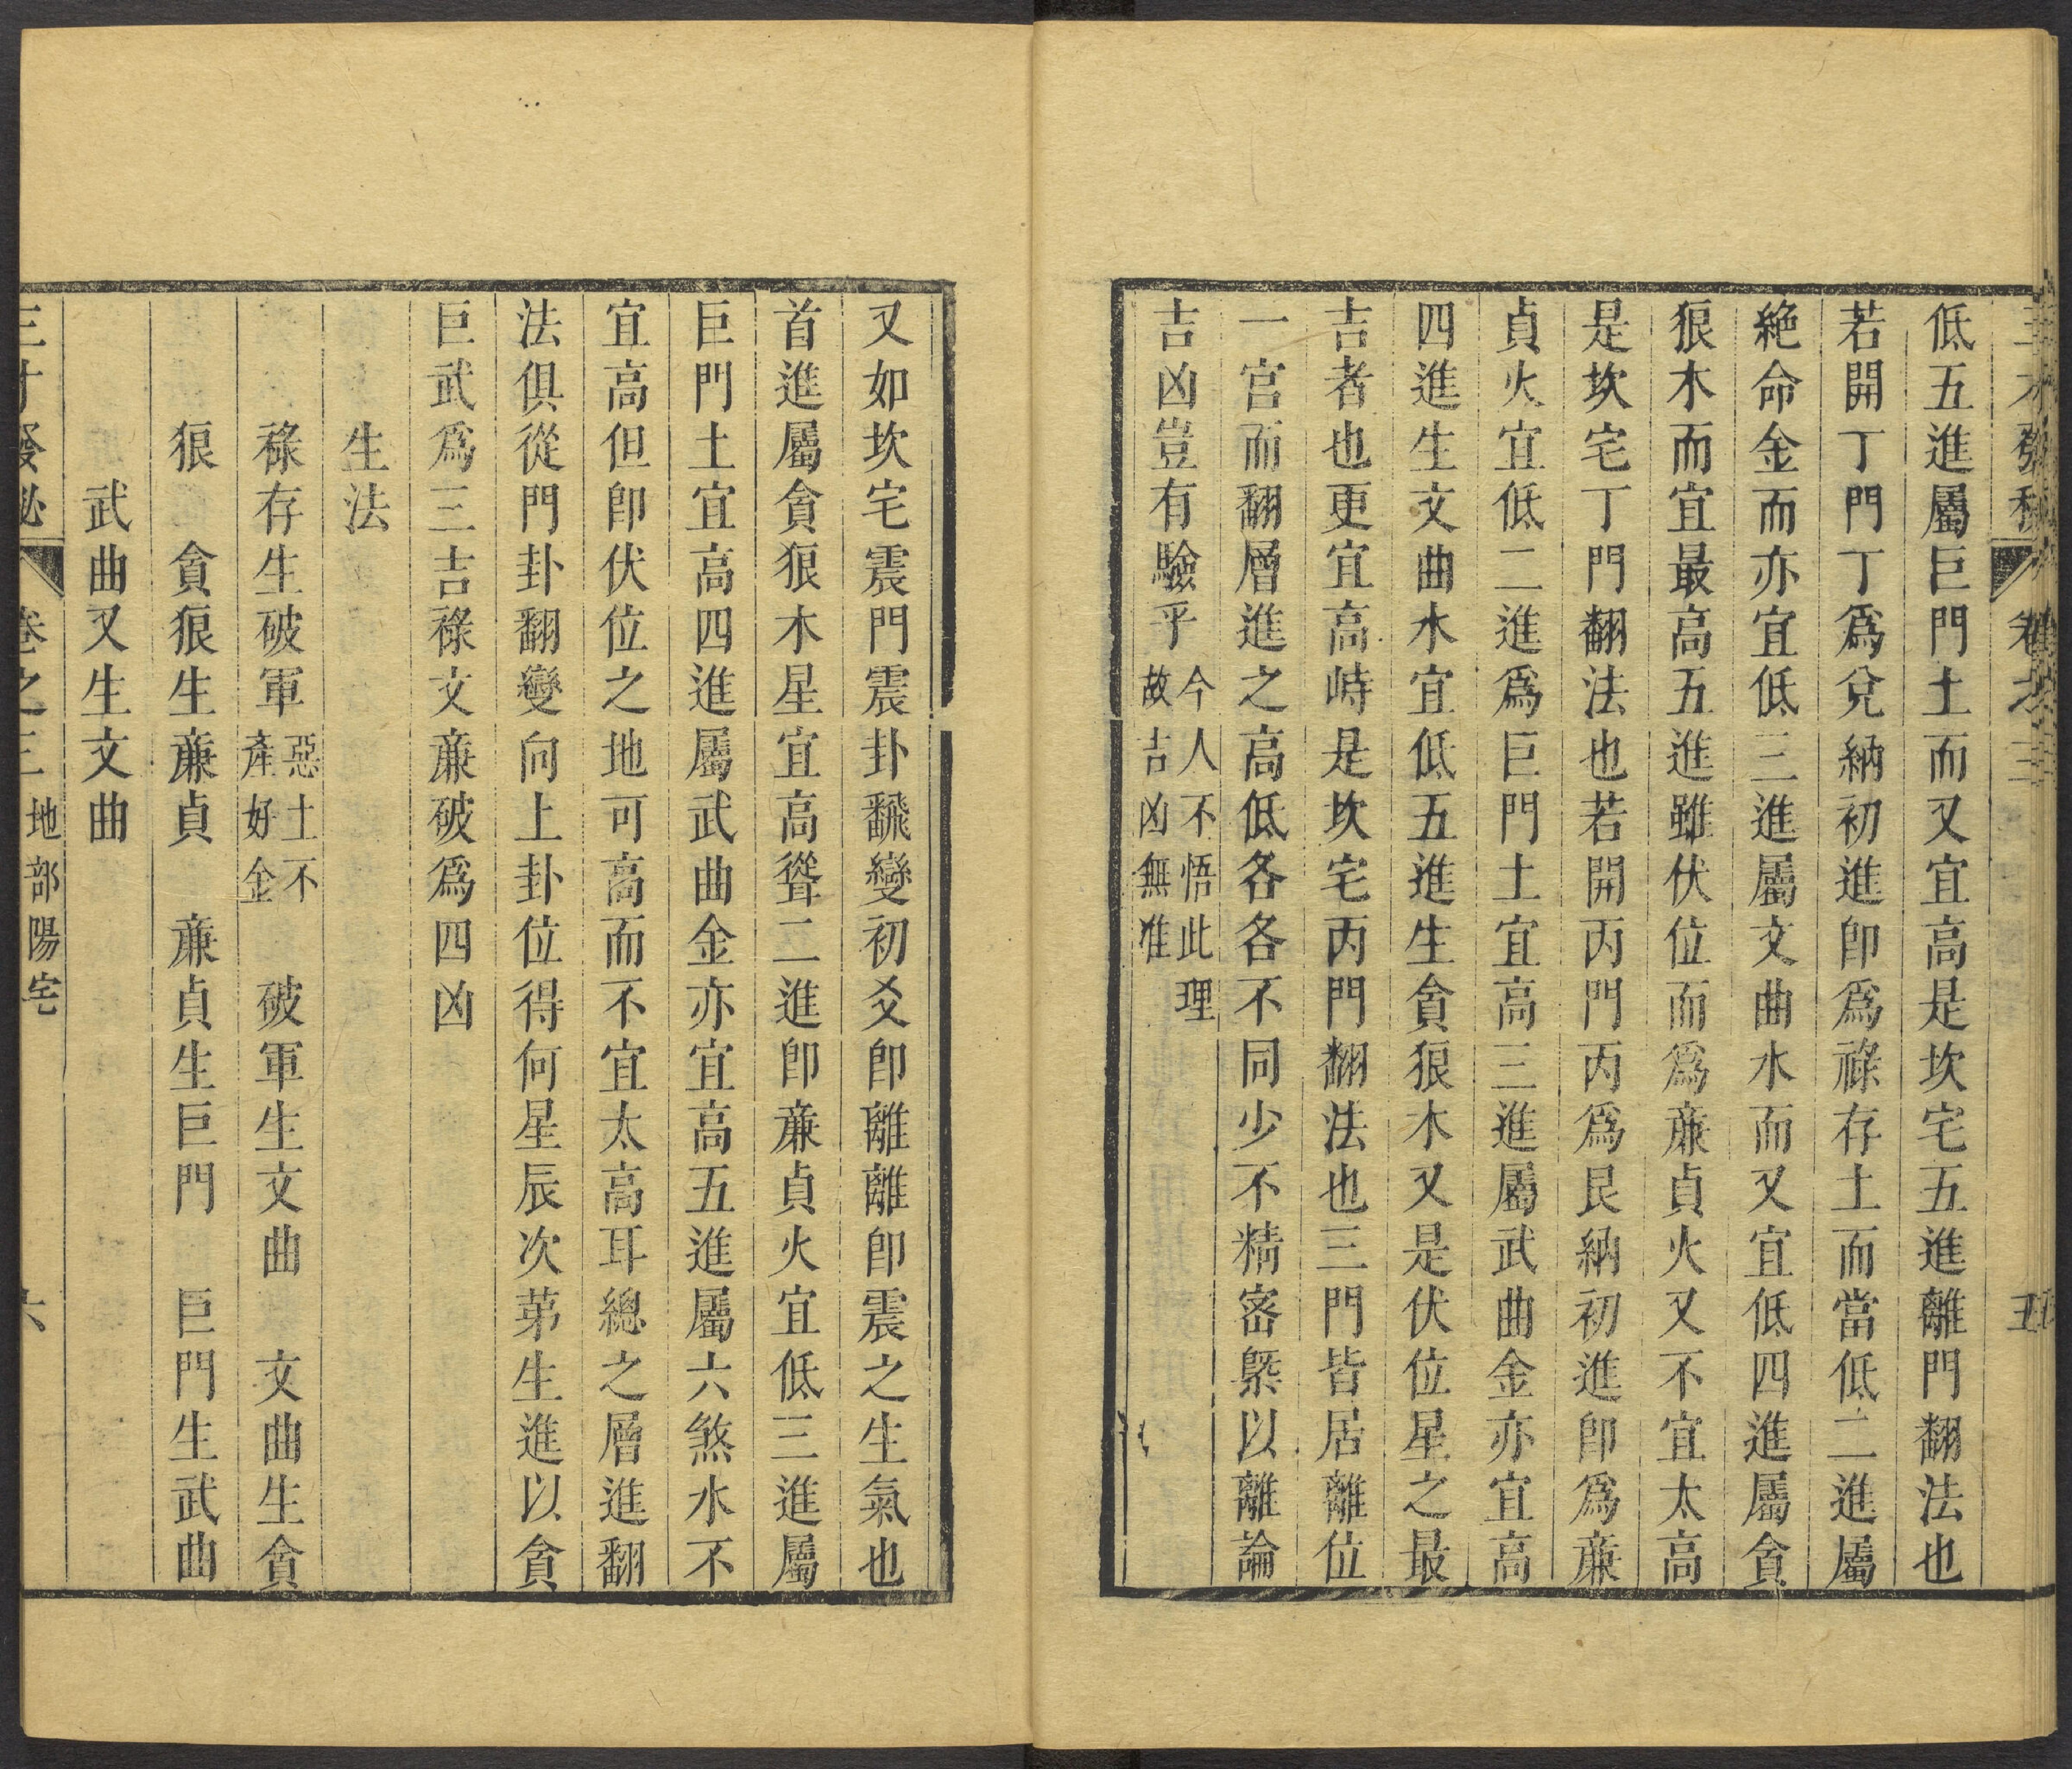 低五進屬巨門土而又宜高是坎宅五進離門翻法也
若開丁門丁爲兌納初進卽爲祿存土而當低二進屬
絶命金而亦宜低三進屬文曲水而又宜低四進屬貪
狼木而宜最高五進雖伏位而爲亷貞火又不宜太高
是坎宅丁門翻法也若開丙門丙爲艮納初進卽爲亷
貞火宜低二進爲巨門土宜高三進屬武曲金亦宜高
四進生文曲水宜低五進生貪狼木又是伏位星之最
吉者也更宜高峙是坎宅丙門翻法也三門皆居離位
一宫而翻層進之高低各各不同少不精密槩以離論
吉凶豈有驗乎今人不悟此理故吉凶無准
又如坎宅震門震卦飜變初爻卽離離卽震之生氣也
首進屬貪狼木星宜高聳二進卽亷貞火宜低三進屬
巨門土宜高四進屬武曲金亦宜高五進屬六煞水不
宜高但卽伏位之地可高而不宜太高耳總之層進翻
法俱從門卦翻變向上卦位得何星辰次苐生進以貪
巨武爲三吉祿文亷破爲四凶
生法
祿存生破軍惡土不產好金 破軍生文曲 文曲生貪
狼 貪狼生亷貞 亷貞生巨門 巨門生武曲
武曲又生文曲
三才發秘 卷之三 地部陽宅 六